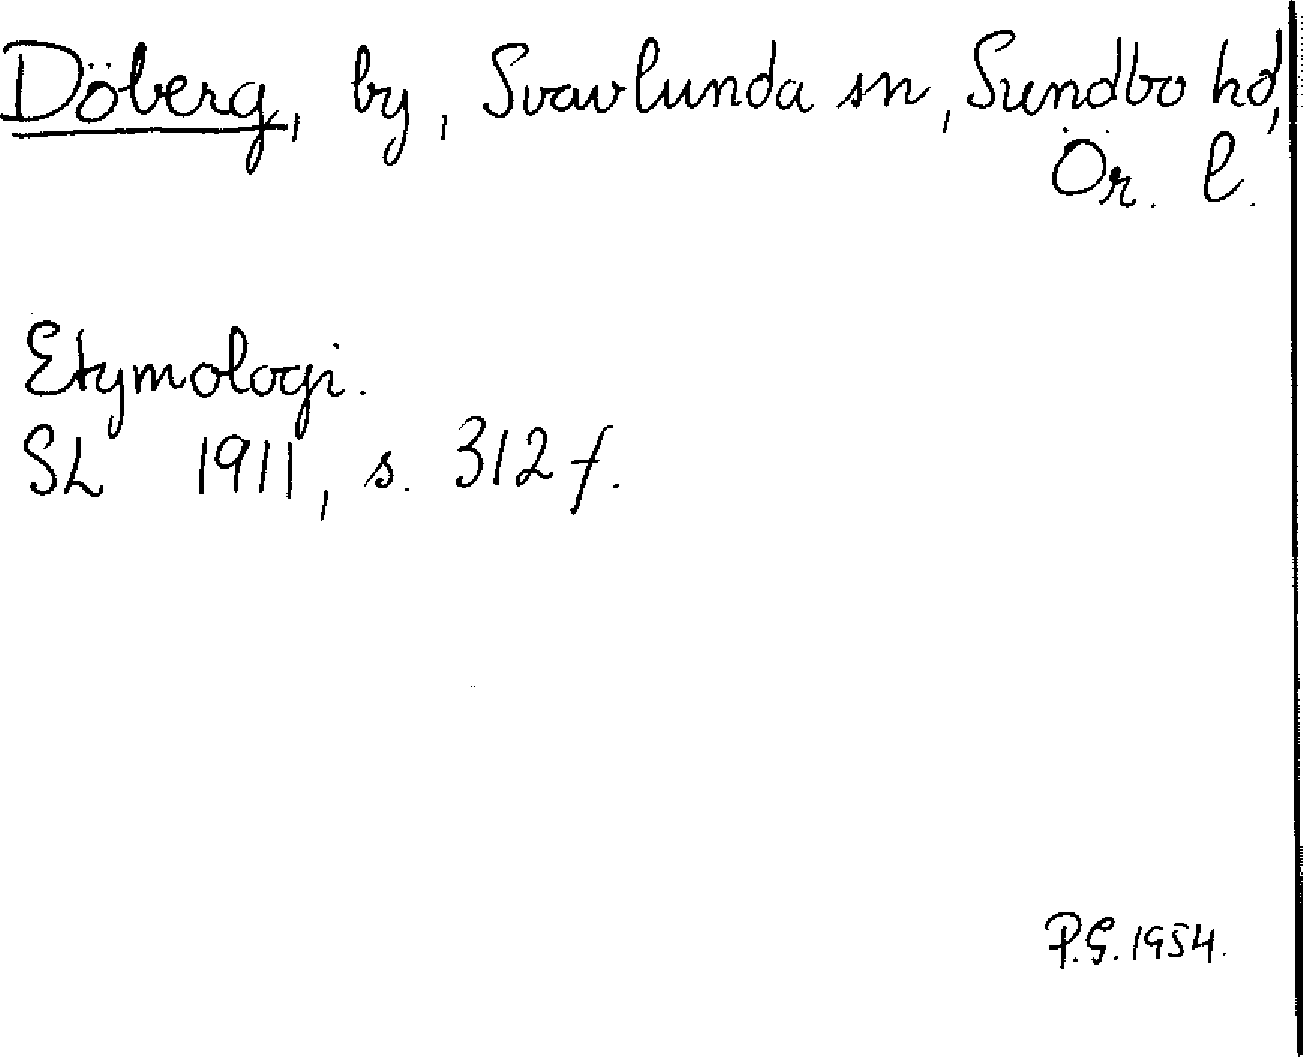 Döberg, by, Svavlunda sn, Sundbo hd,
Ör. l.
Etymologi.
SL 1911, s. 312 f.
P.G. 1954.